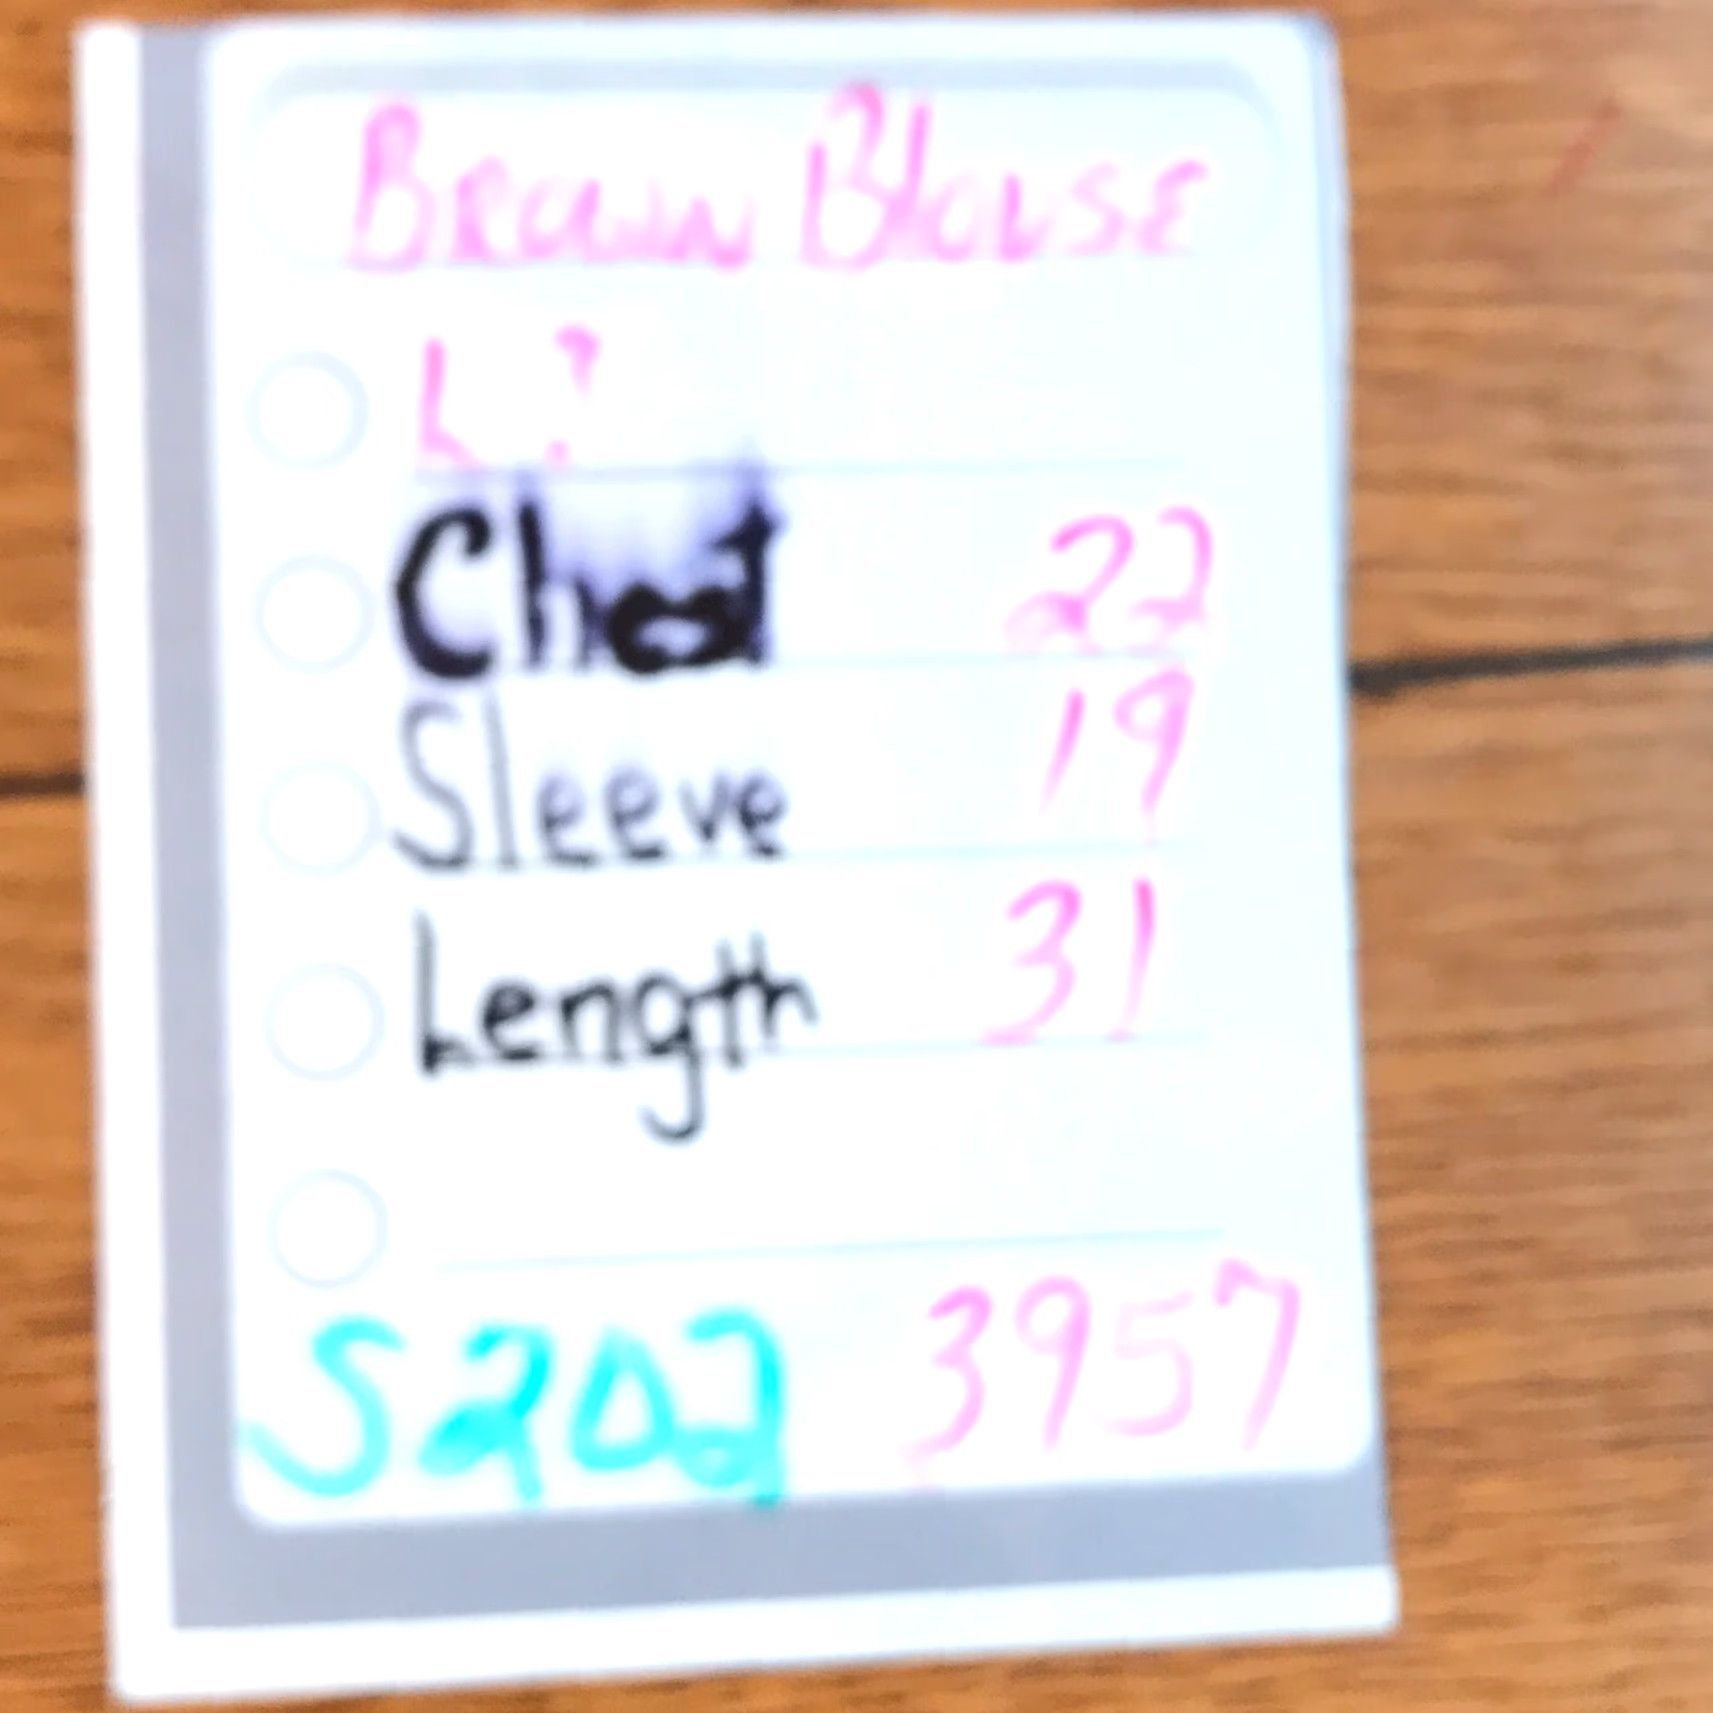 Brown Blouse
L?
Chest 22
Sleeve 19
Length 31
S202 3957